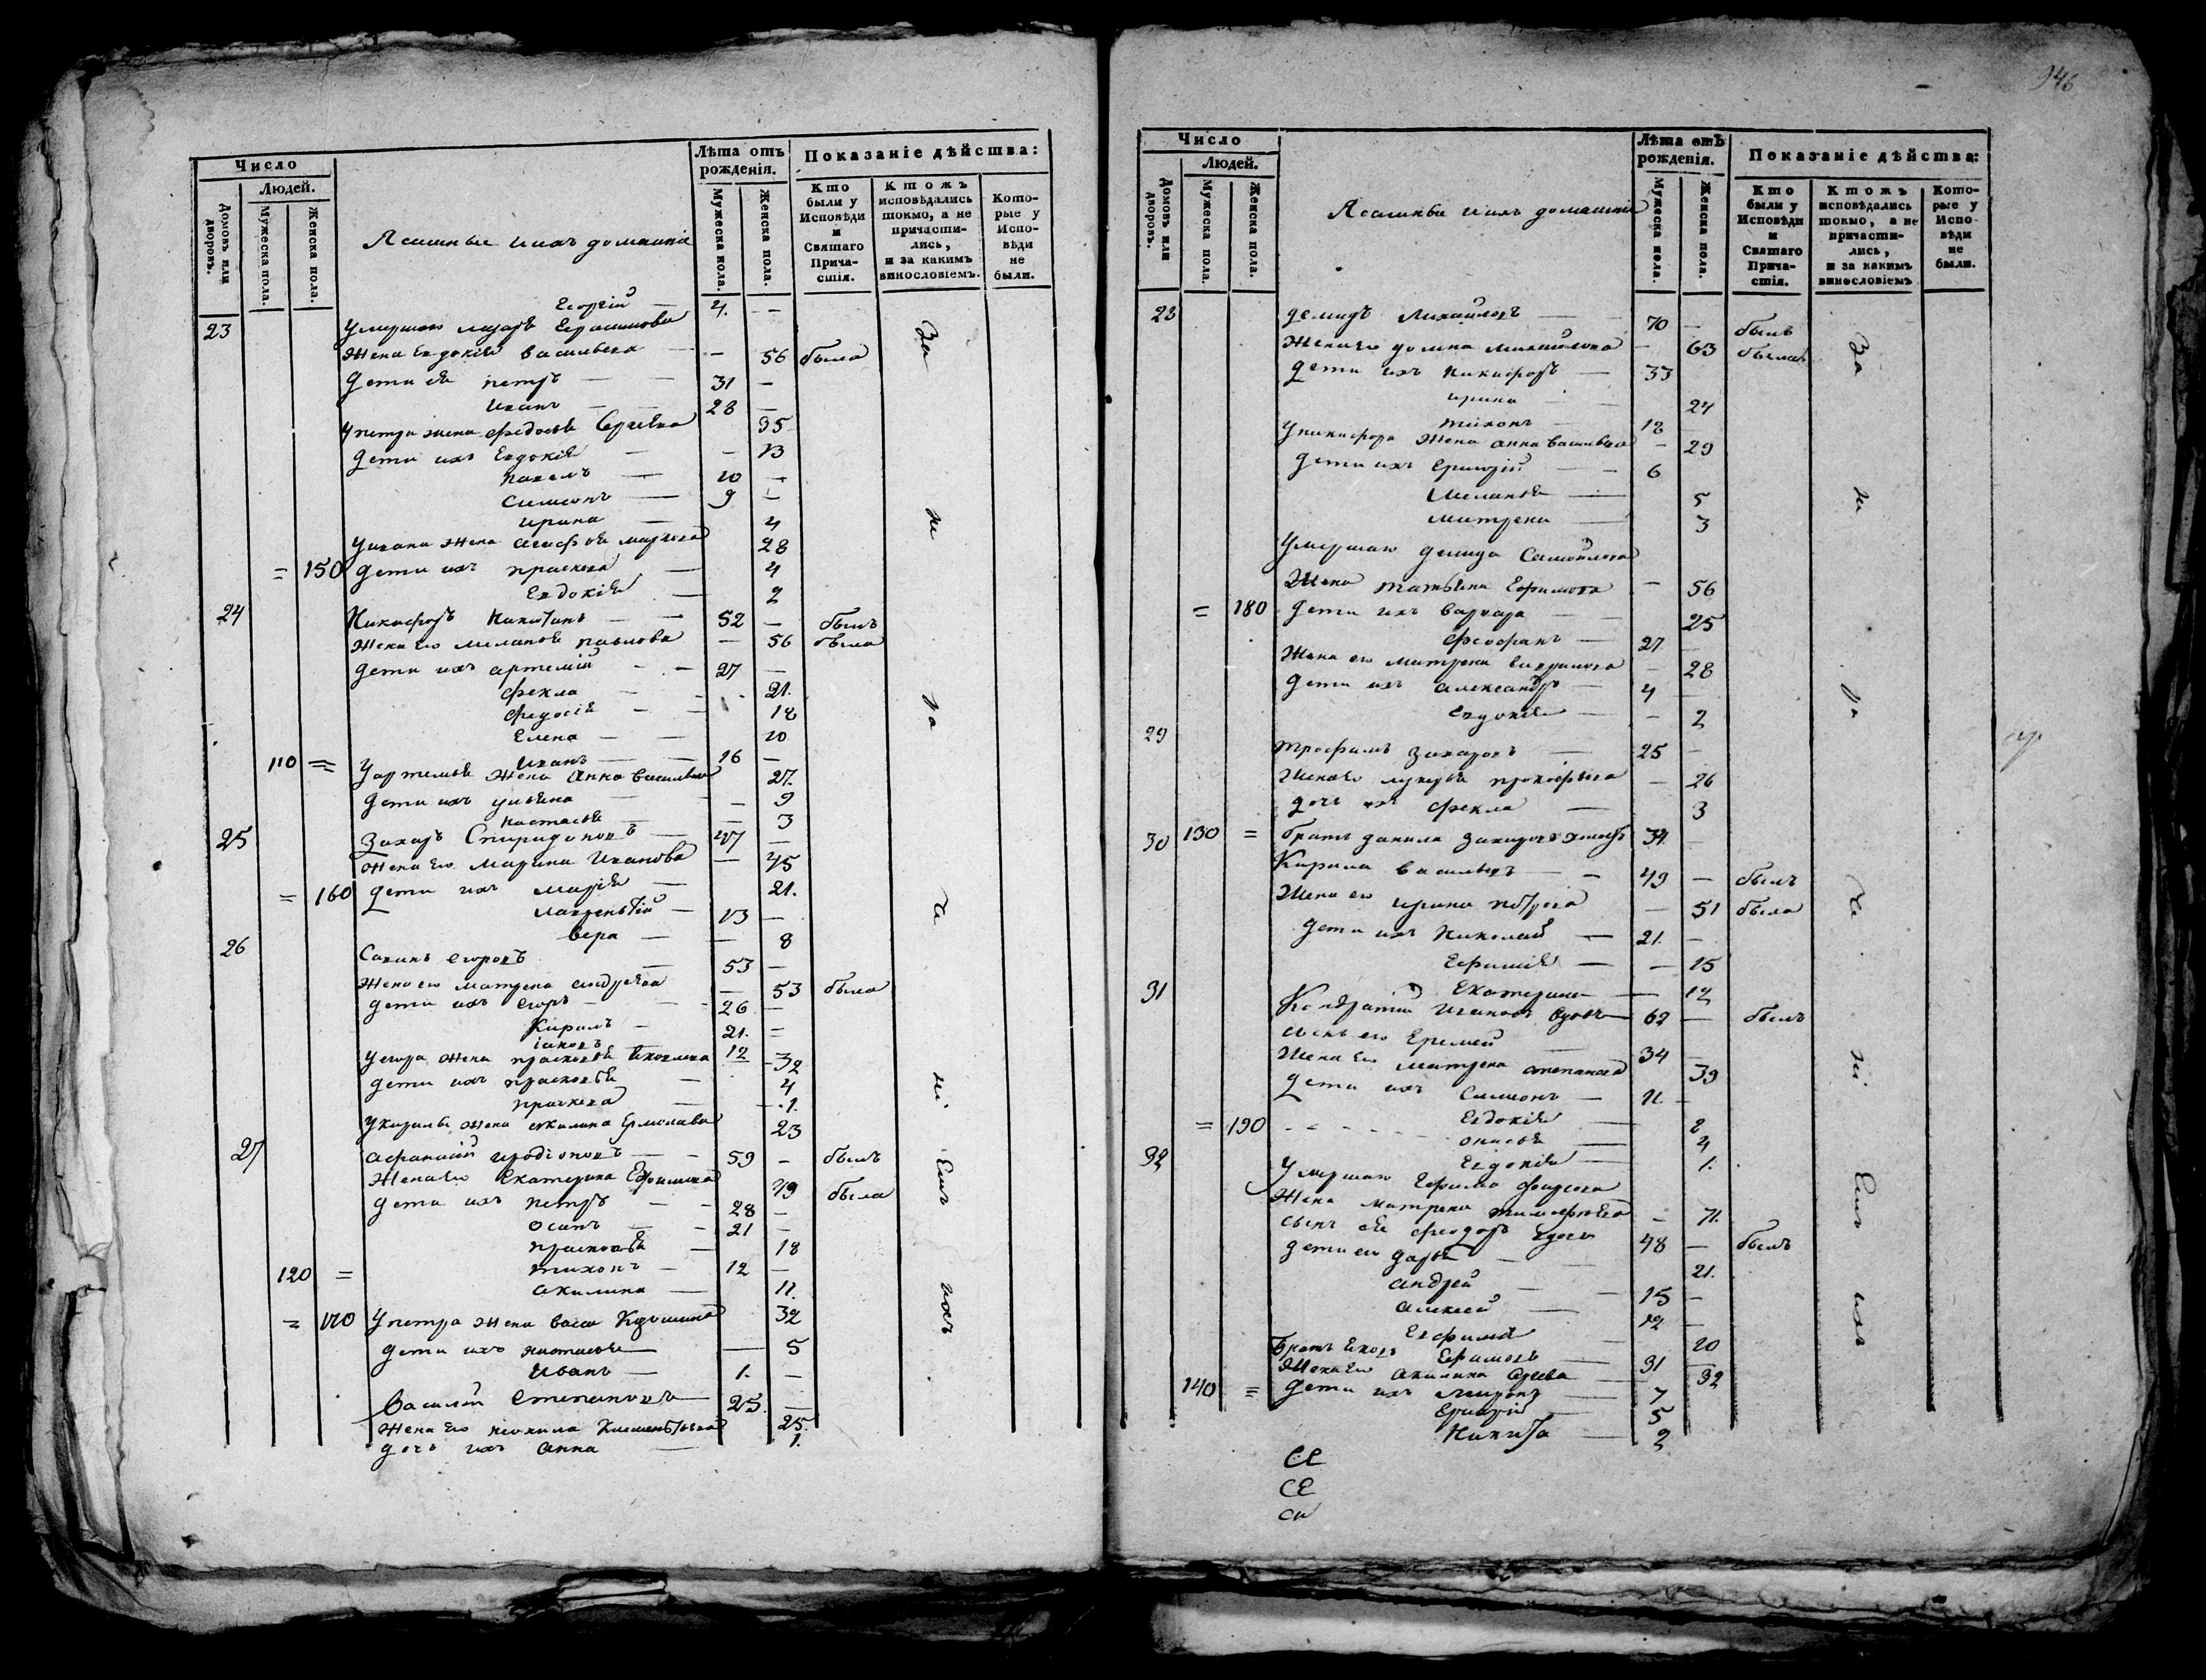 Число
Людей.
Домовъ или дворовъ.
Мужеска пола.
Женска пола.
Ясашные и ихъ домашнiе
Лѣта отъ рожденія.
Мужеска пола.
Женска пола.
Показаніе дѣйства:
Кто были у Исповѣди и Святаго Причастія.
Ктожъ исповѣдались токмо, а не причастились, и за какимъ винословіемъ.
Которые у Исповѣди не были.
Георгій — 4. —
23 Умершаго лазаря Герасимова
жена Евдокія васильева — 56 была
дети ея петръ — 31 —
иванъ — 28 —
У петра жена федосья Сергѣева 35
дети ихъ Евдокія — 13
павелъ — 10 —
Симионъ — 9 —
ирина — 4
У ивана жена агафья маркова 28
= 150 дети ихъ прасковья — 4
Евдокія — 2
24 Никифоръ Никитинъ — 52 — былъ
жена его меланья павлова — 56 была
дети ихъ артемій — 27 —
фекла — 21.
федосія — 18
Елена — 10
110 = иванъ — 16 —
У артемья жена анна васильева 27.
дети ихъ ульяна — 9
настасья — 3
25 Захаръ Спиридоновъ — 47 —
жена его Марина Иванова — 45
= 160 дети ихъ марія — 21.
лаврентій — 13 —
вера — 8
26 Савинъ егоровъ — 53 —
жена его матрена андреева — 53 была
дети ихъ егоръ — 26 —
Кирилъ — 21. =
іаковъ — 12 —
У егора жена прасковья 32
дети ихъ прасковья — 4
— 1.
У кирилы жена акилина Ермолаева 23
27 Афанасій иродіоновъ — 59 — былъ
жена его Екатерина Ефимова 49 была
дети ихъ петръ — 28 —
осипъ — 21 —
прасковья — 18
120 = тихонъ — 12 —
акилина — 11.
= 170 У петра жена васа 32
дети ихъ настасья — 5
Иванъ — 1. —
Василій Степановъ — 25. —
жена его 25.
дочь ихъ анна — 1.
За
и
ра
че
ні
емъ
ихъ
346
Число
Людей.
Домовъ или дворовъ.
Мужеска пола.
Женска пола.
Ясашные и ихъ домашнiе
Лѣта отъ рожденія.
Мужеска пола.
Женска пола.
Показаніе дѣйства:
Кто были у Исповѣди и Святаго Причастія.
Ктожъ исповѣдались токмо, а не причастились, и за какимъ винословіемъ
Которые у Исповѣди не были.
28 демидъ Михайловъ — 70 — былъ
жена его домна 63 была
дети ихъ никифоръ — 33
ирина — 24
тихонъ 18
У никифора жена анна васильева — 29
дети ихъ — 6
Меланья — 5
матрена — 3
Умершаго демида Самойлова
жена татьяна Ефимова — 56
= 180 дети ихъ варвара — 25
феофанъ — 27. —
жена его матрена — 28
дети ихъ александръ — 4 —
евдокія — 2
29 трофимъ захаровъ — 25 —
жена его прокофьева — 26
дочь ихъ фекла — 3
30 130 = братъ данила захаровъ 34 —
Кирила васильевъ — 49 — былъ
жена его ирина петрова — 51 была
дети ихъ Николай — 21. —
Ефимія — 15
Екатерина — 12
31 Кондратій ивановъ вдовъ 62 — былъ
сынъ его Еремей — 34 —
жена его матрена степанова 39
дети ихъ Симионъ — 11. —
= 190 Евдокія — 8
— 4
Евдокія — 1.
32 Умершаго Ефима
жена матрена тимофеева — 71.
сынъ ея феодоръ вдовъ 48 — былъ
дети его дарья — 21.
андрей — 15 —
алексей — 12 —
— 10
братъ Ефимовъ — 31
жена его акилина Сергеева — 32
140 = дети ихъ — 7
— 5
Никита — 2
За
и
ра
че
ні
емъ
ихъ